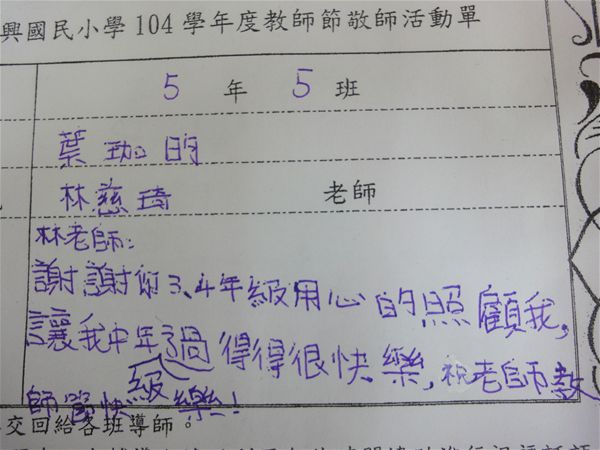 興國民小學104學年度教師節敬師活動單
5 年 5 班
葉珈昀
林慈琦 老師
林老師:
謝謝你3、4年級用心的照顧我,
讓我中年級過得得很快樂,祝老師教
師節快樂!
交回給各班導師。